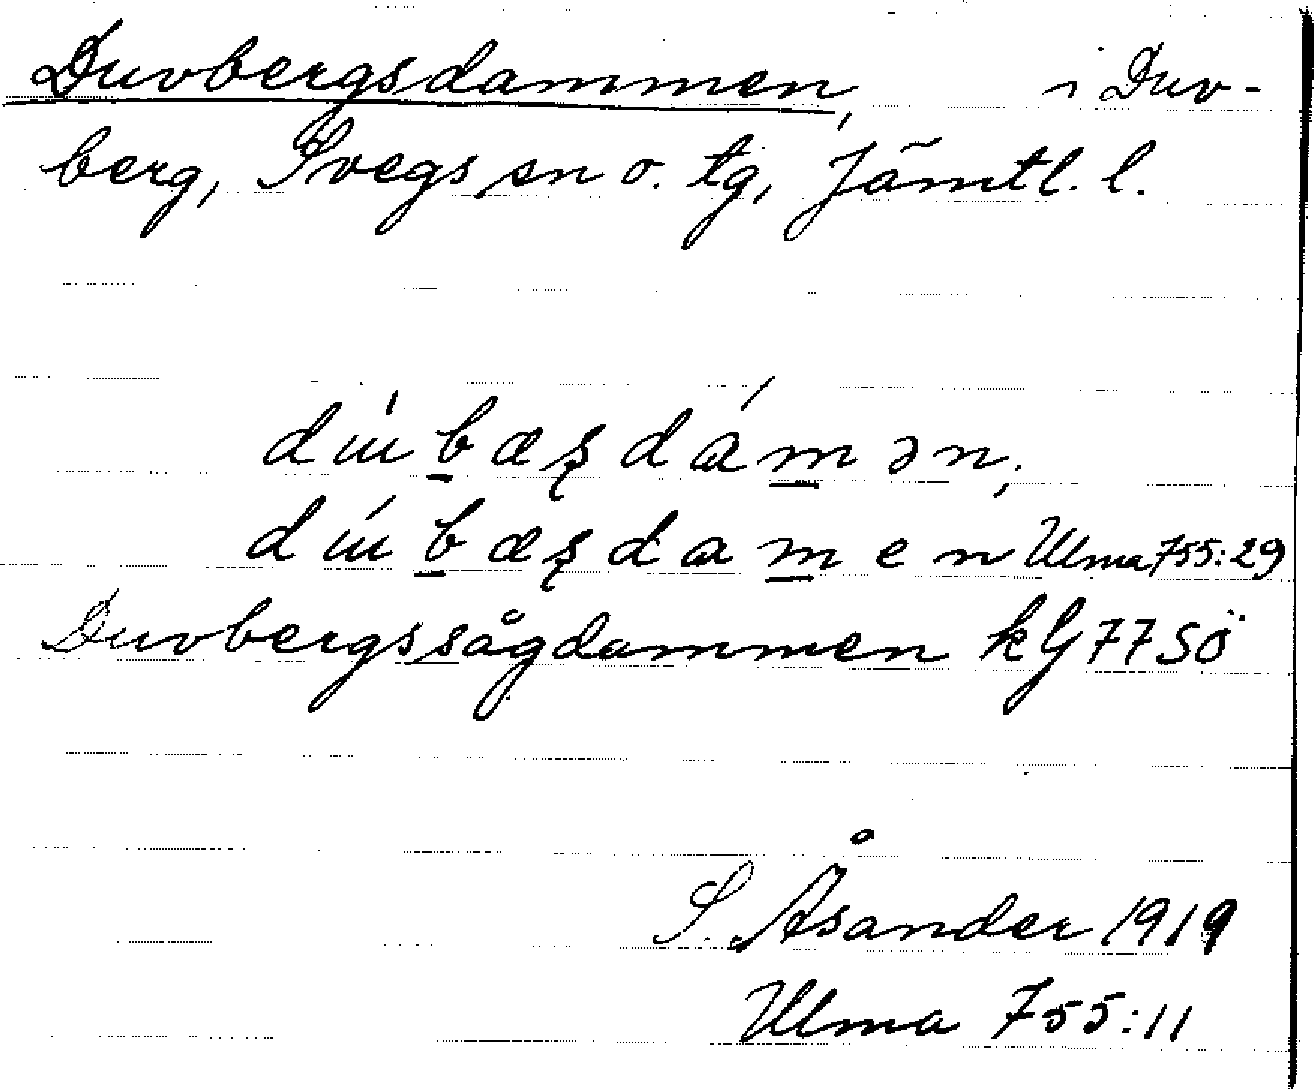 Duvbergsdammen, i Duv-
berg, Svegs sn o. tg, Jämtl. l.
dúu̇b̲æʂdám̲ən,
dúub̲æʂdam̲en Ulma 755:29
Duvbergssågdammen kG 77 SÖ
S. Åsander 1919
Ulma 755:11